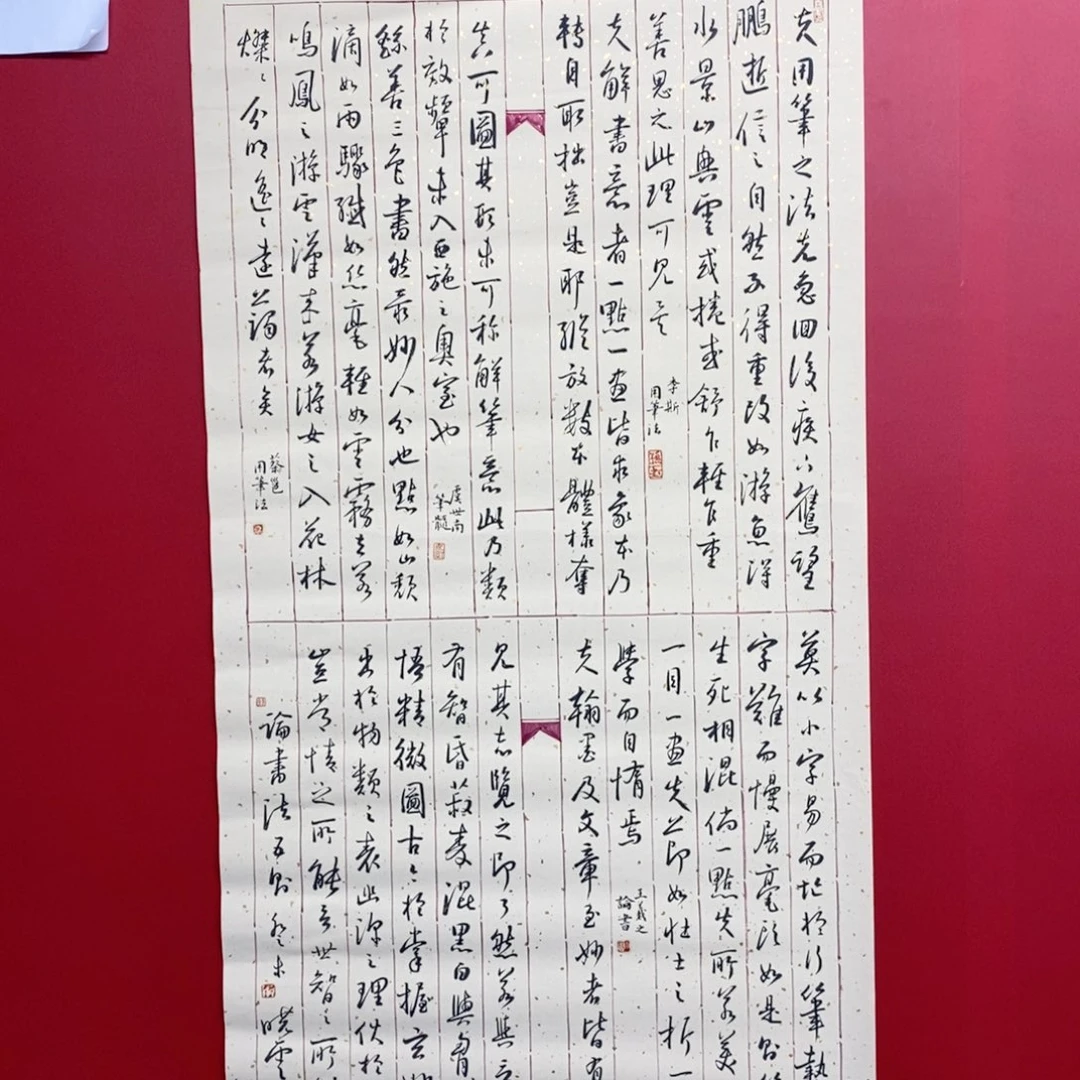 夫用筆之法先急回後疾下鷹望
鵬逝信之自然不得重改如游魚得
水景山興雲或捲或舒乍輕乍重
善思之此理可見矣
李斯
用筆法
夫解書意者一點一畫皆求象本乃
轉自取拙豈是耶縱放類本體樣奪
真可圖其形未可称解筆意此乃類
於效顰未入西施之奧室也
虞世南
筆髓
繇善三色書然最妙八分也點如山頹
滴如雨驟纖如絲毫輕如雲霧去若
鳴鳳之游雲漢来若游女之入花林
燦燦分明遙遙遠上者矣
蔡邕
用筆法
莫以小字易而忙於行筆勢
字難而慢展毫頭如是則筋
生死相混倘一點失所若美
一目一畫失節如壮士之折一
學而自惰焉
王羲之
論書
夫翰墨及文章至妙者皆有
見其志覽之即了然若與言
有智昏菽麥混黑白與胷
悟精微圖古今於掌握玄
出於物類之表幽深之理伏於
豈常情之所能言世智之所
論書法五則癸未
曉雲